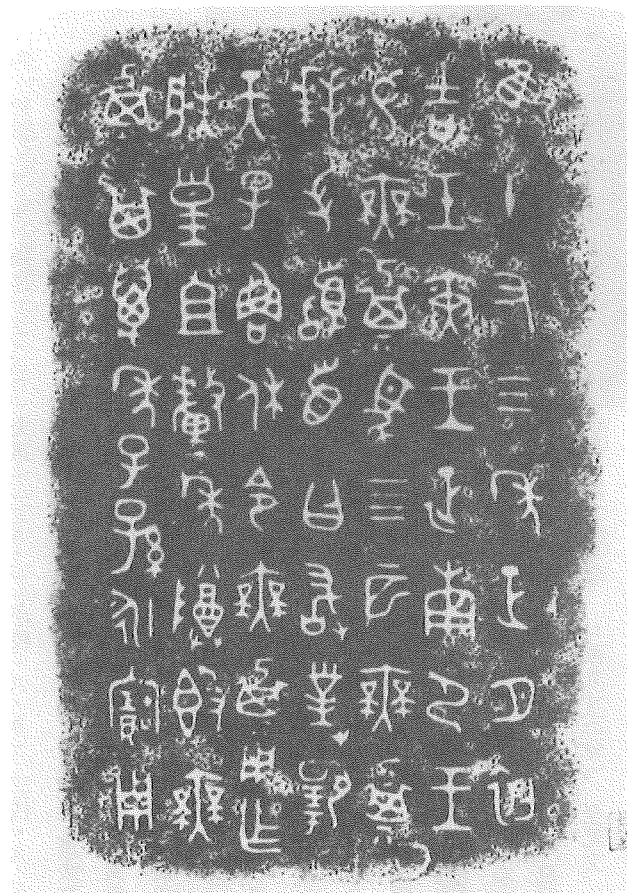 隹十又三年正月初
吉壬寅王征南尸王
易無㠱馬四匹無㠱
拜手稽首曰敢對揚
天子魯休令無㠱用乍
朕皇且釐季尊簋無
㠱其萬年子孫永寶用